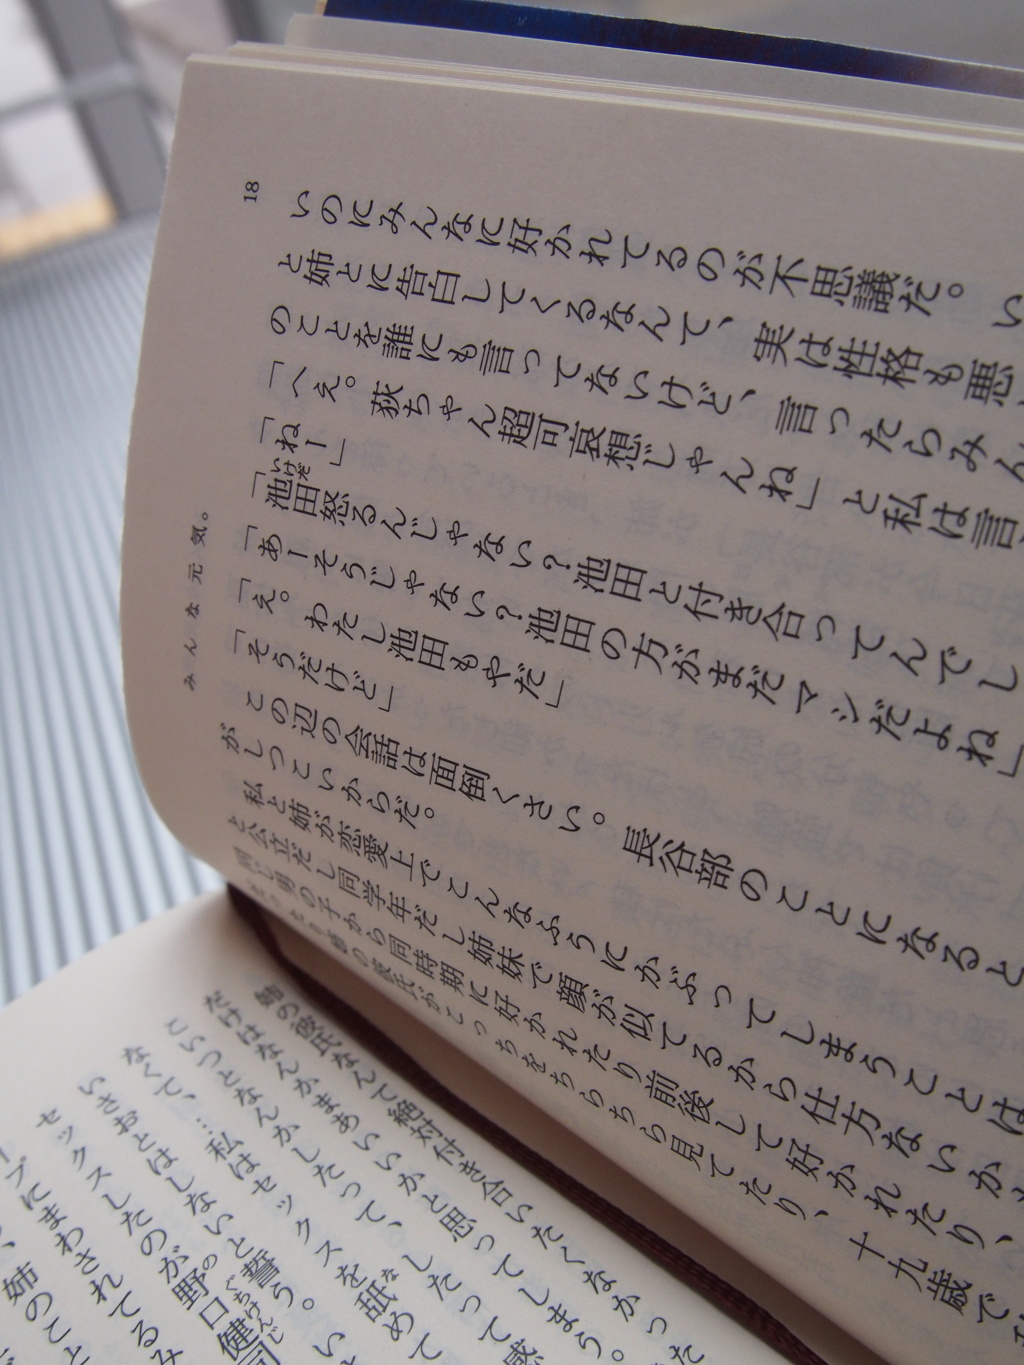 18
いのにみんなに好かれてるのが不思議だ。い
と姉とに告白してくるなんて、実は性格も悪
のことを誰にも言ってないけど、言ったらみん
「へえ。荻ちゃん超可哀想じゃんね」と私は言
「ねー」
「池田怒るんじゃない？池田と付き合ってんでし
いけだ
「あーそうじゃない？池田の方がまだマシだよね」
「え。わたし池田もやだ」
「そうだけど」
この辺の会話は面倒くさい。長谷部のことになると
がしつこいからだ。
私と姉が恋愛上でこんなふうにかぶってしまうことは
と公立だし同学年だし姉妹で顔が似てるから仕方ないか
同じ男の子から同時期に好かれたり前後して好かれたり、
姉の彼氏がこっちをちらちら見てたり、十九歳で
みんな元気。
姉の彼氏なんて絶対付き合いたくなかった
だけはなんかまあいいかと思ってしまう。
といつとなんかしたって、したって感
なくて、…私はセックスを舐めて
な
いさおとはしないと誓う。い
セックスしたのが野口健司
のぐちけんじ
ープにまわされてるみ
、姉のこと